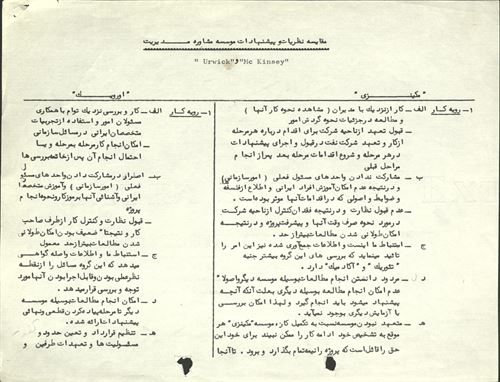 مقایسه نظریات و پیشنهادات موسسه مشاوره مدیریت
"Urwick" و "Mc Kinsey"
"مکینزی"
۱- رویه کار الف - کار از نزدیک با مدیران (مشاهده نحوه کار آنها)
و مطالعه در جزئیات نحوه گردش امور
قبول تعهد از ناحیه شرکت برای اقدام درباره هر مرحله
از کار و تعهد شرکت نفت در قبول و اجرای پیشنهادات
در هر مرحله و شروع اقدامات مرحله بعد پس از انجام
مراحل قبلی
ب - مشارکت ندادن واحد های مسئول فعلی (امور سازمانی)
و در نتیجه عدم امکان آموزش افراد ایرانی و اطلاع از فلسفه
و ضوابط و اصولی که در اقدامات آنها موثر بوده است.
- عدم قبول نظارت و در نتیجه فقدان کنترل از ناحیه شرکت
در مورد نحوه صرف وقت آنها و پیشرفت پروژه و در نتیجه
امکان طولانی شدن مطالعات بیش از حد.
ج - استنباط ما اینست و اطلاعات جمع آوری شده نیز این امر را
تائید مینماید که بررسی های این گروه بیشتر جنبه
"تئوریک" و "آکادمیک" دارد.
د - مردود دانستن انجام مطالعات بوسیله موسسه دیگر و اصولا"
عدم امکان انجام مطالعات بوسیله دیگری بعلت آنکه آنچه
پیشنهاد میشود باید انجام گیرد و لهذا امکان بررسی
یا آزمایش دیگری بوجود نمیآید.
ه - متعهد نبودن موسسه نسبت به تکمیل کار، موسسه "مکینزی" هر
موقع به تشخیص خود ادامه کار را ممکن نبیند برای خود این
حق را قائل است که پروژه را نیمه تمام بگذارد و برود. تا آنجا
"اورویک"
۱- رویه کار الف - کار و بررسی نزدیک توام با همکاری
مسئولان امور و استفاده از تجربیات
متخصصان ایرانی در مسائل سازمانی
- امکان انجام کار مرحله بمرحله و یا
احتمال انجام آن پس از خاتمه بررسی ها
ب - اصرار در مشارکت دادن واحد های مسئول
فعلی (امور سازمانی) و آموزش متخصصان
ایرانی و آشنائی آنها بر موز کار و نحوه انجام
پروژه
- قبول نظارت و کنترل کار از طرف صاحب
کار و نتیجتا" ضعیف بودن امکان طولانی
شدن مطالعات بیش از حد معمول
ج - استنباط ما و اطلاعات واصله گواهی
میدهد که این گروه مسائل را از نقطه
نظر عملی بودن و قابل اجرا بودن آنها مورد
توجه و بررسی قرار میدهد.
د - امکان انجام مطالعات بوسیله موسسه
دیگر تا مرحله پیاده کردن قطعی و نهائی
پیشنهادات ارائه شده.
ه - تنظیم قرارداد و تعیین حدود و
مسئولیت ها و تعهدات طرفین و